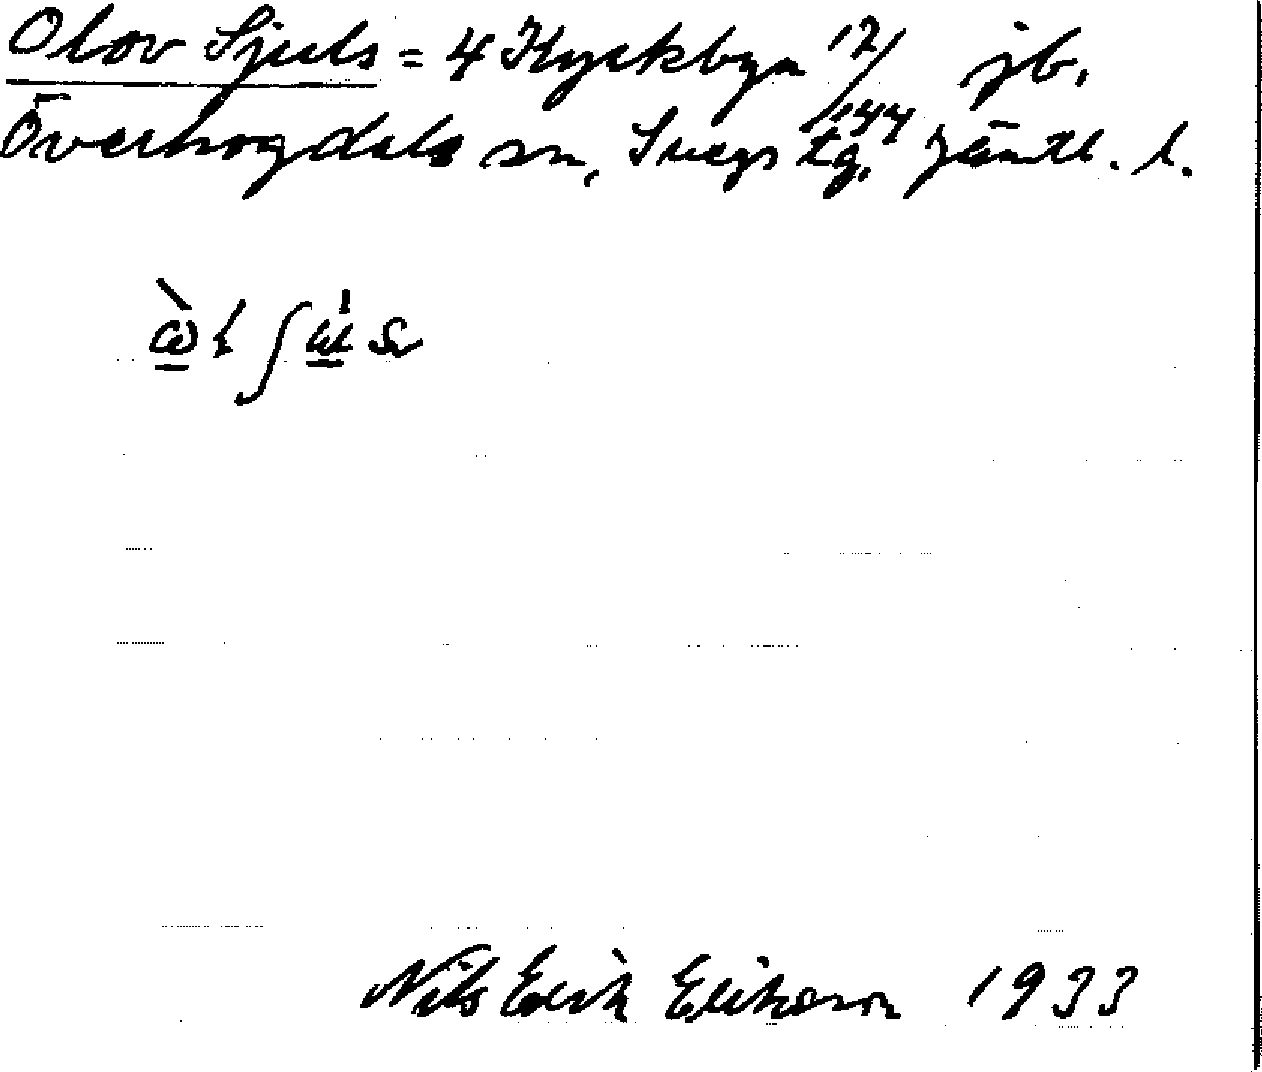 Olov Sjuls = 4 Kyrkbyn 12/144 jb.
Överhogdals sn, Svegs tg, Jämtl. l.
Nils Erik Erikson 1933